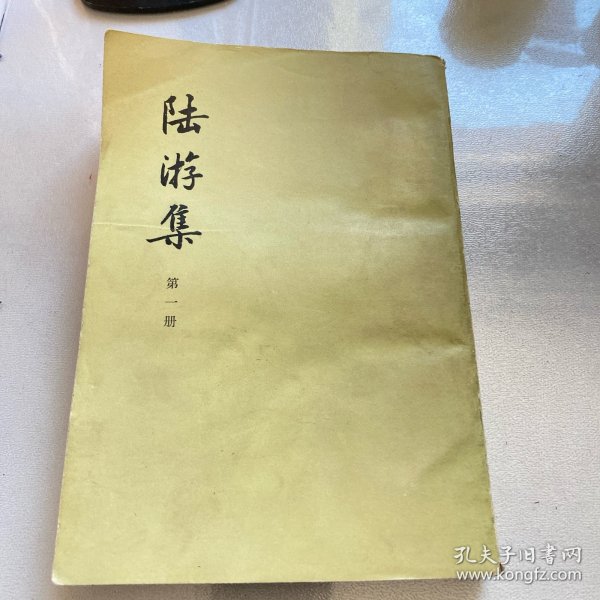 陆游集
第一册
孔夫子旧书网
www.kongfz.com